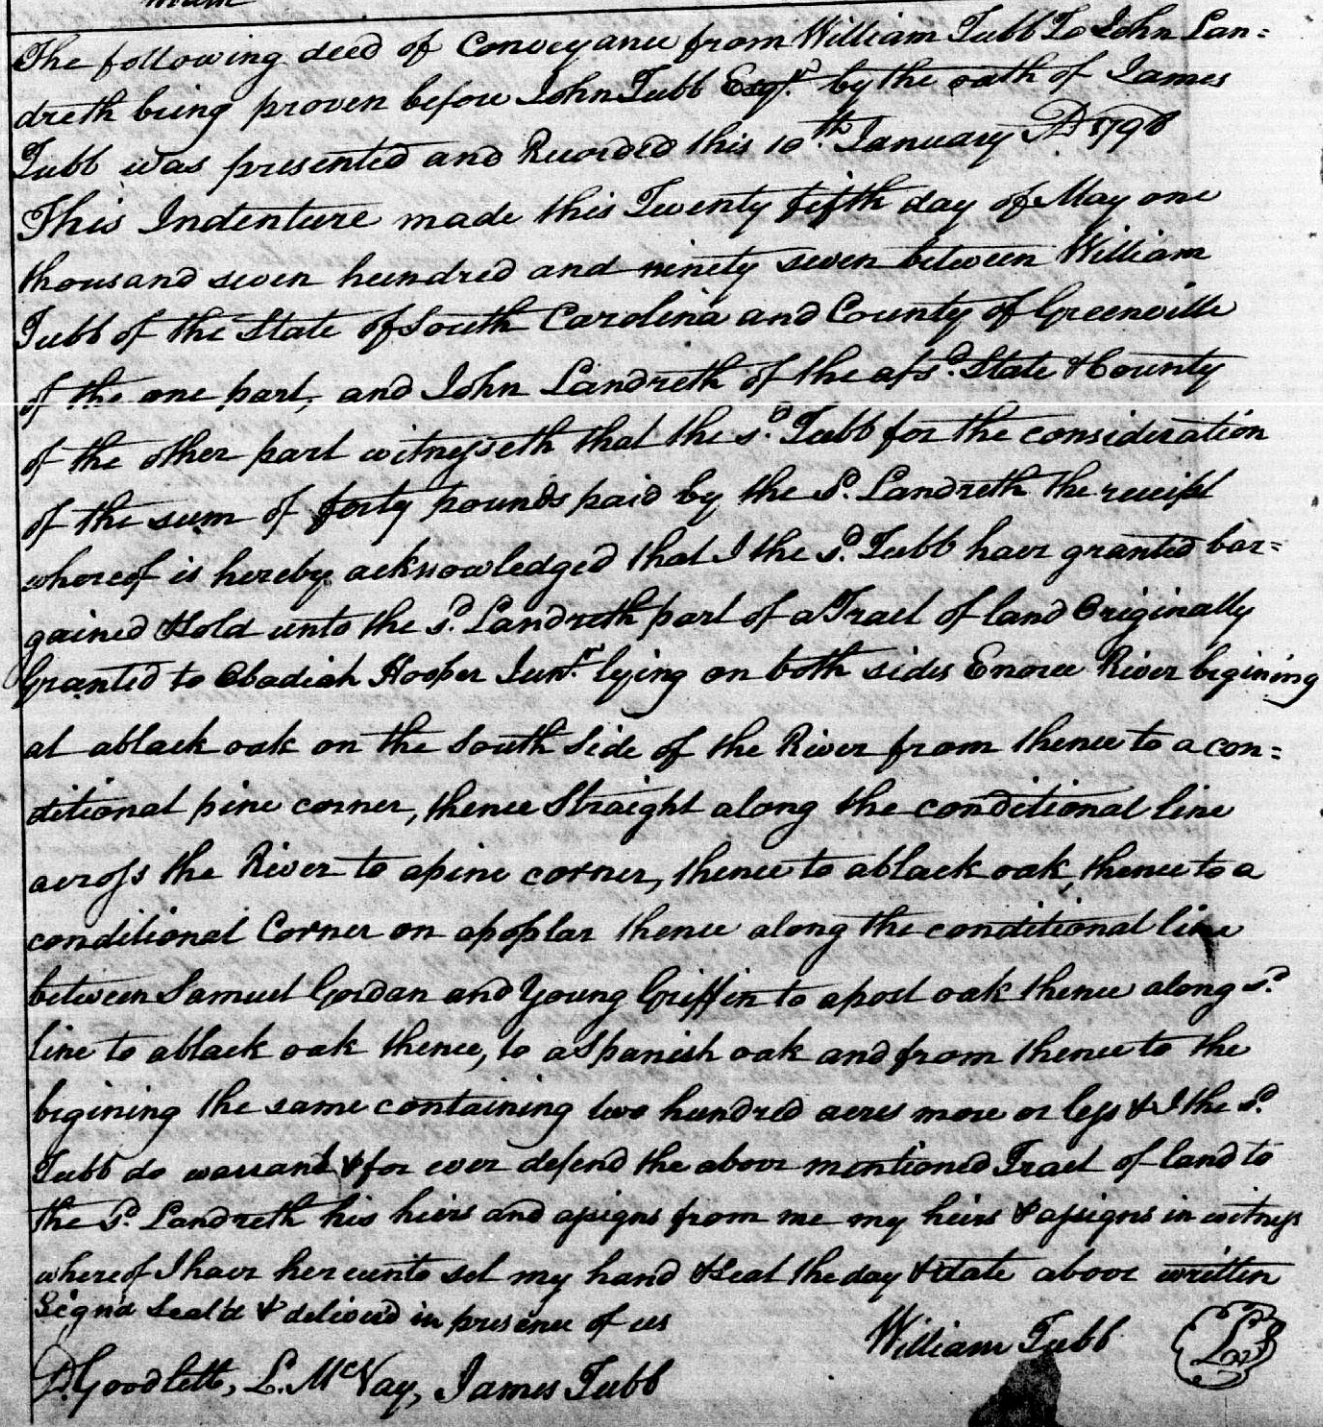 The following deed of Conveyance from William Tubb To John Lan=
dreth being proven before John Tubb Esqr. by the oath of James
Tubb was presented and Recorded this 10th. January AD 1798
This Indenture made this Twenty fifth day of May one
thousand seven hundred and ninety seven between William
Tubb of the State of South Carolina and County of Greenville
of the one part, and John Landreth of the afsd. State & County
of the other part witnesseth that the sd. Tubb for the consideration
of the sum of forty pounds paid by the sd. Landreth the receipt
whereof is hereby acknowledged that I the sd. Tubb have granted bar=
gained & Sold unto the sd. Landreth part of a Tract of land Originally
Granted to Obadiah Hooper Junr. lying on both sides Enoree River begining
at a black oak on the South Side of the River from thence to a con=
ditional pine corner, thence Straight along the conditional line
across the River to a pine corner, thence to a black oak, thence to a
conditional Corner on a poplar thence along the conditional line
between Samuel Gordan and Young Griffin to a post oak thence along sd.
line to a black oak thence, to a Spanish oak and from thence to the
begining the same containing two hundred acres more or less & I the sd.
Tubb do warrant & for ever defend the above mentioned Tract of land to
the sd. Landreth his heirs and assigns from me my heirs & assigns in witness
whereof I have hereunto set my hand & Seal the day & date above written
Sign'd Seal'd & deliver'd in presence of us
William Tubb LS
D. Goodlett, L. McVay, James Tubb